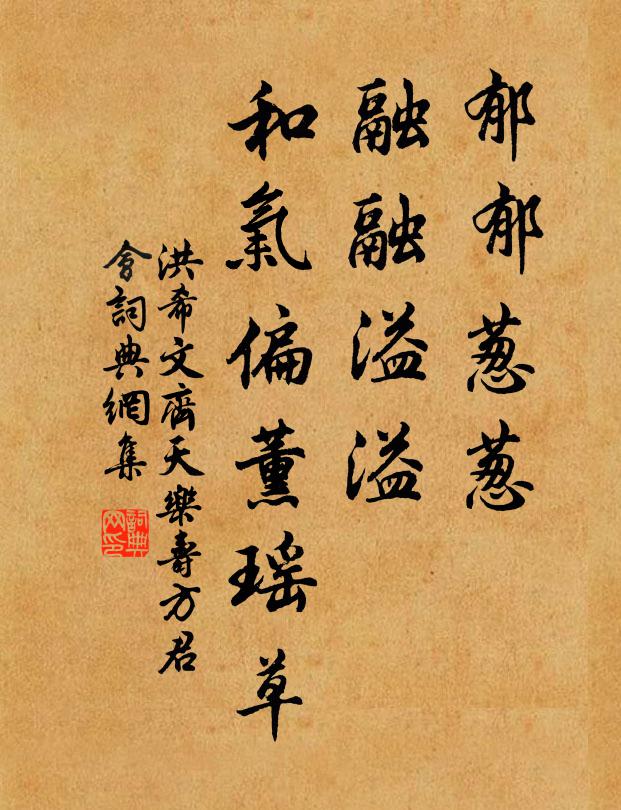 郁郁葱葱
融融溢溢
和氣偏薰瑶草
洪希文齊天樂壽方君
會詞典網集
詞典网印